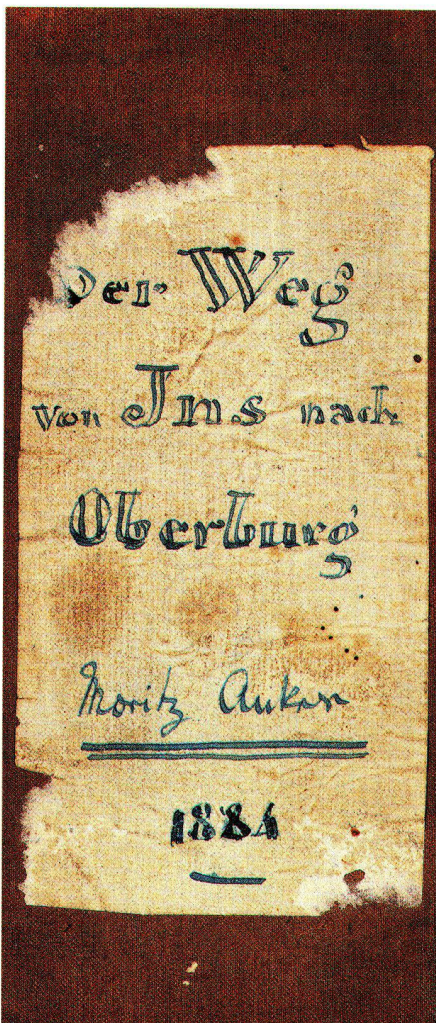 Der Weg
von Jns nach
Oberburg
Moritz Anker
1884